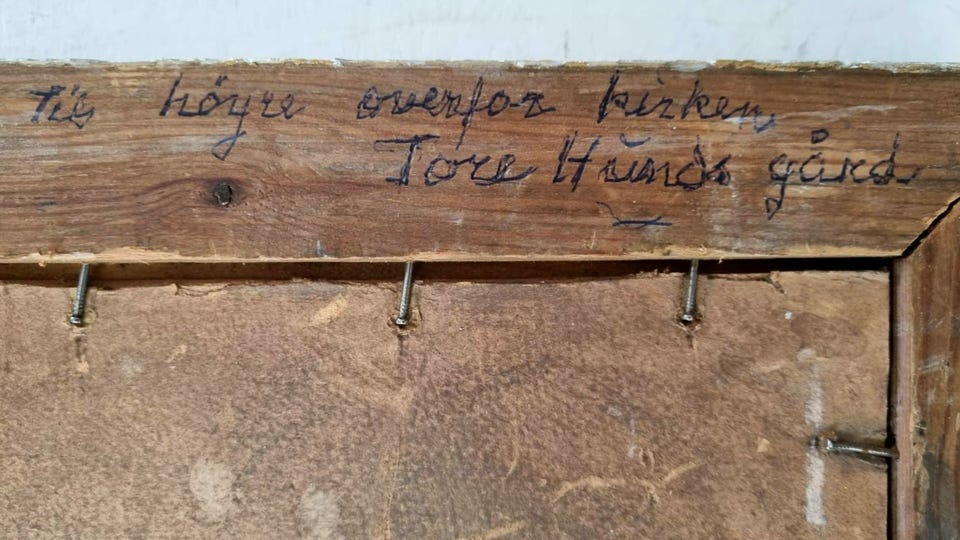 Til höyre overfor kirken
Tore Hŭnds gård